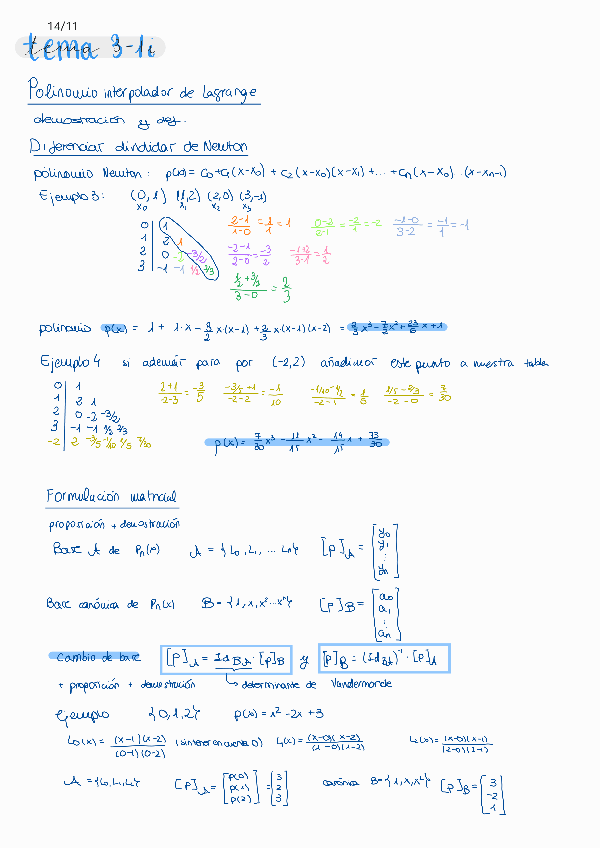 14/11
tema 3-1i
Polinomio interpolador de Lagrange
demostración y def.
Diferenciar dindidar de Newton
polinomio Newton: p(x) = c₀+c₁(x-x₀) + c₂(x-x₀)(x-x₁) + ... + cₙ(x-x₀)·(x-xₙ₋₁)
Ejemplo 3: (0,1) (1,2) (2,0) (3,-1)
x₀ x₁ x₂ x₃
0 | 1
1 | 2 1
2 | 0 -2 -3/2
3 | -1 -1 1/2 2/3
(2-1)/(1-0) = 1/1 = 1 (0-2)/(2-1) = -2/1 = -2 (-1-0)/(3-2) = -1/1 = -1
(-2-1)/(2-0) = -3/2 (-1+2)/(3-1) = 1/2
(1/2+3/2)/(3-0) = 2/3
polinomio p(x) = 1 + 1·x - 3/2 x(x-1) + 2/3 x·(x-1)(x-2) = 2/3 x³ - 7/2 x² + 23/6 x + 1
Ejemplo 4 si además para por (-2,2) añadimos este punto a nuestra tabla
0 | 1
1 | 2 1
2 | 0 -2 -3/2
3 | -1 -1 1/2 2/3
-2 | 2 -3/5 -1/10 1/5 7/30
(2+1)/(-2-3) = -3/5 (-3/5+1)/(-2-2) = -1/10 (-1/10-1/2)/(-2-1) = 1/5 (1/5-2/3)/(-2-0) = 7/30
Formulación matricial
proposición + demostración
Base A de Pₙ(x) A = {L₀, L₁, ... Lₙ} [P]A = [y₀ y₁ ⋮ yₙ]
Base canónica de Pₙ(x) B = {1, x, x² ... xⁿ} [P]B = [a₀ a₁ ⋮ aₙ]
Cambio de base [P]A = Id BA · [P]B y [P]B = (Id BA)⁻¹ · [P]A
+ proposición + demostración ↳ determinante de Vandermonde
Ejemplo {0,1,2} p(x) = x² - 2x + 3
L₀(x) = (x-1)(x-2)/(0-1)(0-2) (sin tener en cuenta 0) L₁(x) = (x-0)(x-2)/(1-0)(1-2) L₂(x) = (x-0)(x-1)/(2-0)(2-1)
A = {L₀, L₁, L₂} [P]A = [p(0) p(1) p(2)] = [3 2 3] canónica B = {1, x, x²} [P]B = [3 -2 1]